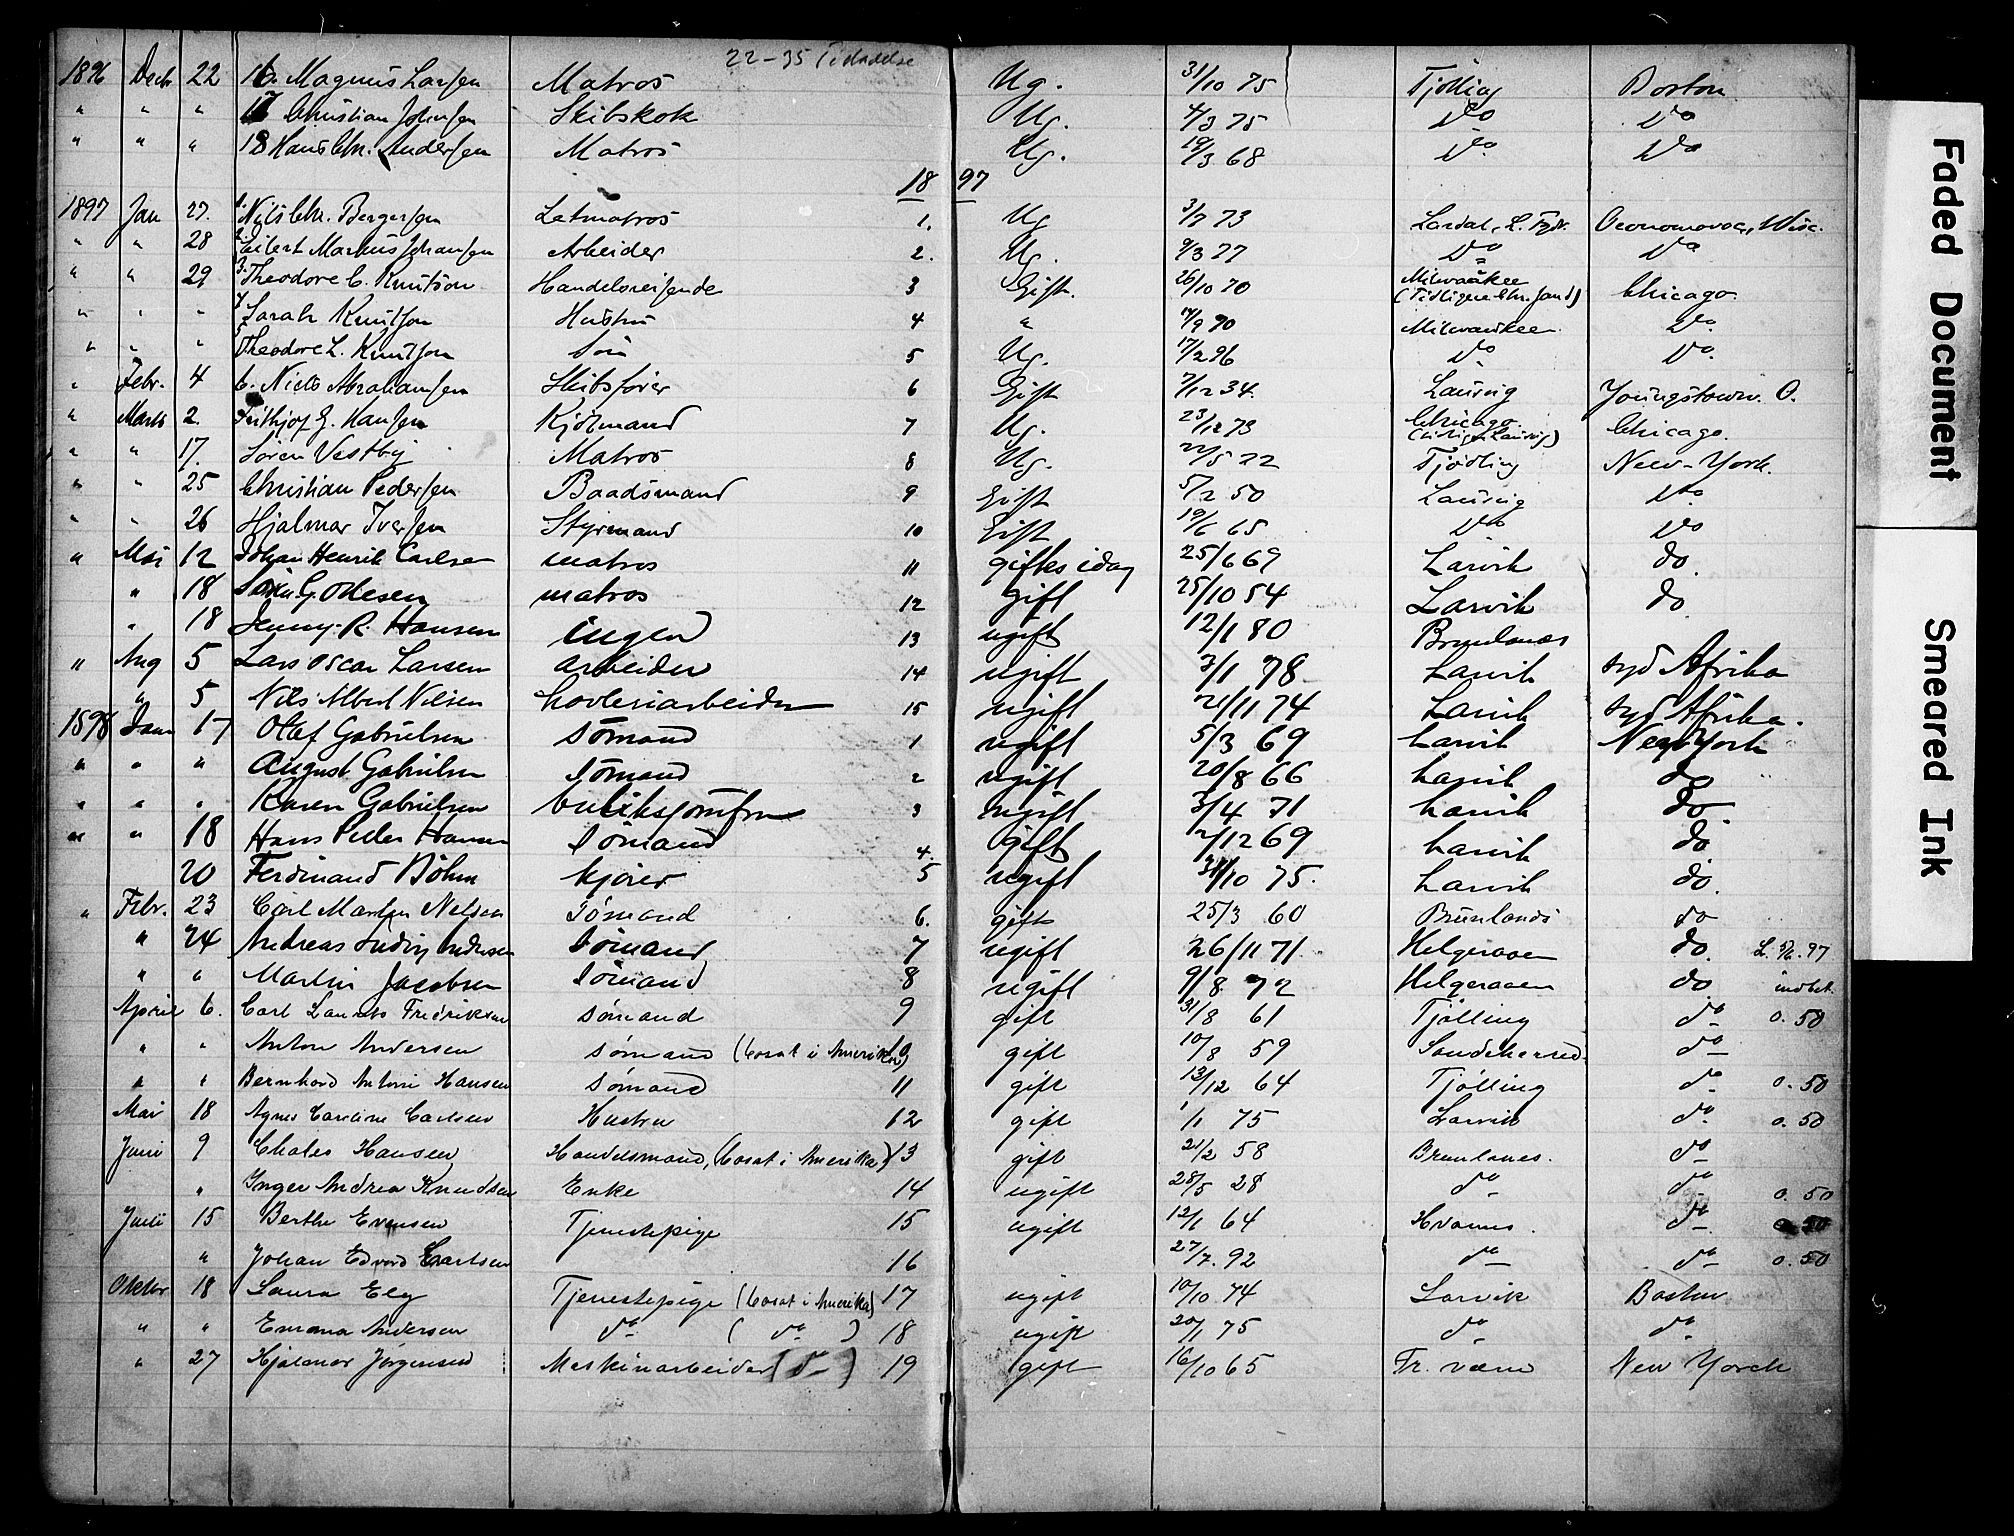 22-35 Tidadelse
1896 Decbr 22 16. Magnus Larsen Matros Ug. 31/10 75 Tjölling Boston
" " " 17 Christian Johnsen Skibskok Ug. 4/3 75 Do Do
" " " 18 Hans Chr. Andersen Matros Ug. 19/3 68 Do Do
18 97
1897 Jan 27. 1. Nils Chr. Bergersen Letmatros 1. Ug 3/7 73 Lardal, L. Fogdr. Oconomowoc, Wisc.
" " 28 2. Eilert Markus Johansen Arbeider 2. Ug. 9/3 77 Do Do
" " 29 3. Theodore C. Knutson Handelsreisende 3 Gift. 26/10 70 Milwaukee (Tidligere Chr.sand) Chicago.
" " " 4 Sarah Knutson Hustru 4 " 17/9 70 Milwaukee Do.
" " " 5 Theodore L. Knutson Sön 5 Ug. 17/2 96 Do Do.
" Febr. 4 6. Niels Abrahamsen Skibsförer 6 Gift 7/12 34. Laurvig Youngstown. O.
" Marts 2. Frithjof E. Hansen Kjölmand 7 Ug. 23/12 73 Chicago. (tidligere Laurvig) Chicago.
" " 17. Sören Vestby Matros 8 Ug. 22/5 72 Tjödling New-York.
" " 25 Christian Pedersen Baadsmand 9 Gift 5/2 50 Laurvig Do
" " 26 Hjalmar Iversen Styrmand 10 Gift 19/6 65 Do Do
" Mai 12 Johan Henrik Carlsen matros 11 giftes idag 25/6 69 Larvik do.
" 18 G. Olesen matros 12 gift 25/10 54 Larvik do
" 18 Jenny R. Hansen ingen 13 ugift 12/1 80 Brunlanæs
" Aug 5 Lars Oscar Larsen arbeider 14 ugift 3/1 78 Larvik syd Afrika
" 5 Nils Albert Nilsen hövleriarbeider 15 ugift 21/11 74 Larvik syd Afrika.
1898 Janr 17 Olaf Gabrielsen sömand 1 ugift 5/3 69 Larvik New York
" " " August Gabrielsen sömand 2 ugift 20/8 66 Larvik do
" " " Karen Gabrielsen butiksjomfru 3 ugift 3/4 71 Larvik do
" " 18 Hans Peder Hansen sömand 4. gift 2/12 69 Larvik do
20 Ferdinand Böhm kjörer 5 ugift 31/10 75. Larvik do.
" Febr. 23 Carl Marten Nelson sömand 6. gift 25/3 60 Brunlands do
" 24 Andreas Ludvig Andersen sömand 7 ugift 26/11 71. Helgeraaen do L. 5/6. 97
" " Martin Jacobsen sömand 8 ugift 9/8 72 Helgeraaen do indbet.
April 6. Carl Laurits Fredriksen sömand 9 gift 31/8 61 Tjölling do 0.50
" " Anton Andersen sömand (bosat i Amerika) 10 gift 10/8 59 Sandeherred do
" " Bernhard Antoni Hansen sömand 11 gift 13/12 64 Tjölling do 0.50
Mai 18 Agnes Caroline Carlsen Hustru 12 gift 1/1 75 Larvik do 0.50
Juni 9 Chales Hansen Handelsmand, (bosat i Amerika) 13 gift 21/2 58 Brunlanes. do
" Inger Andrea Knudsen Enke 14 ugift 28/5 28 do do 0.50
Juli 15 Berthe Evensen Tjenestepige 15 ugift 12/1 64 Hvarnes. do 0.50
" Johan Edvard Carlsen 16 27/7. 92 do do 0.50
Oktbr. 18 Laura Elg Tjenestepige (bosat i Amerika) 17 ugift 10/10. 74 Larvik Boston
" " Emma Andersen do ( do ) 18 ugift 20/1 75 do do
" 27 Hjalmar Jørgensen Maskinarbeider (do) 19 gift 16/10 65 Fr. værn New Yorck
Faded Document
Smeared Ink